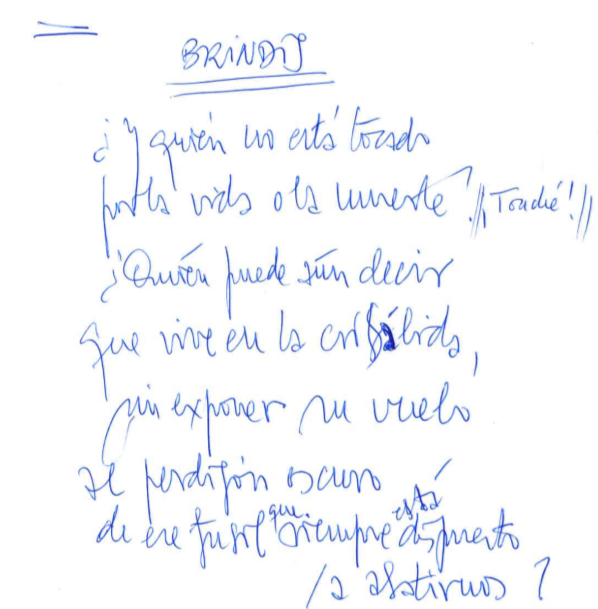 BRINDIS
¿Y quién no está tocado
por la vida o la muerte? //¡Touché!//
¿Quién puede aún decir
que vive en la crisálida,
sin exponer su vuelo
al perdigón oscuro
de ese fusil que siempre está dispuesto
/a abatirnos?